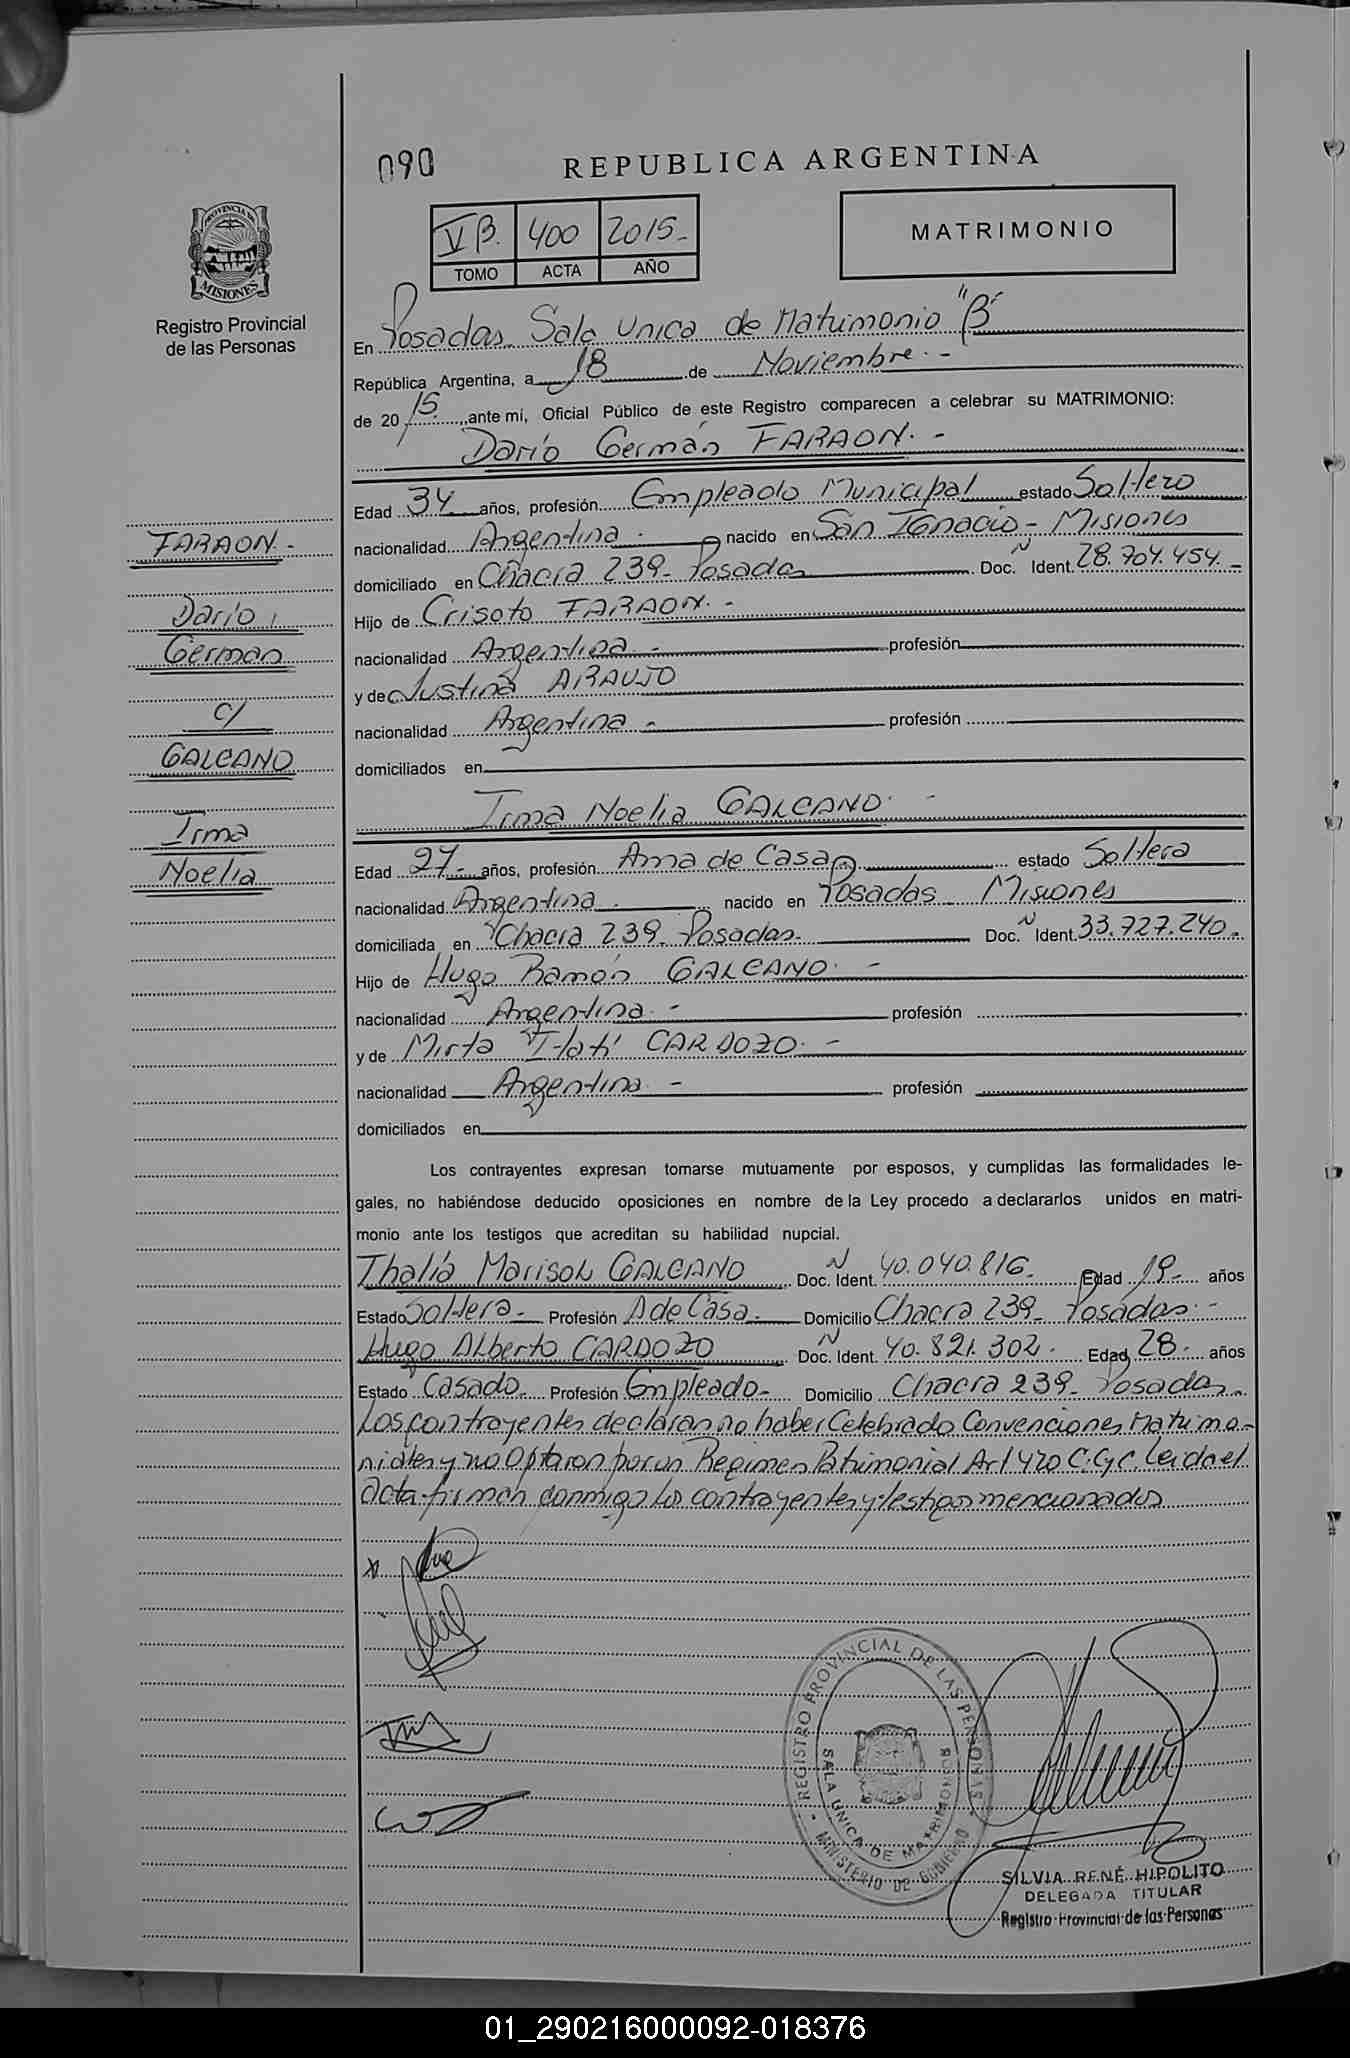 090
REPUBLICA ARGENTINA
V B. 400 2015-
TOMO ACTA AÑO
MATRIMONIO
PROVINCIA DE
MISIONES
Registro Provincial
de las Personas
En Posadas Sala Unica de Matrimonio "B"
República Argentina, a 18 de Noviembre.-
de 2015, ante mi, Oficial Público de este Registro comparecen a celebrar su MATRIMONIO:
Darío Germán FARAON.-
Edad 34 años, profesión Empleado Municipal estado Soltero
nacionalidad Argentina. nacido en San Ignacio - Misiones
domiciliado en Chacra 239- Posadas Doc. N Ident. 28.704.454.-
Hijo de Crisoto FARAON.-
nacionalidad Argentina.- profesión
y de Justina ARAUJO
nacionalidad Argentina.- profesión
domiciliados en
Irma Noelia GALEANO.-
Edad 27- años, profesión Ama de Casa. estado Soltera
nacionalidad Argentina. nacido en Posadas Misiones
domiciliada en Chacra 239- Posadas. Doc. N Ident. 33.727.240.
Hijo de Hugo Ramón GALEANO.-
nacionalidad Argentina.- profesión
y de Mirta Itatí CARDOZO.-
nacionalidad Argentina.- profesión
domiciliados en
FARAON.-
Darío
Germán
c/
GALEANO
Irma
Noelia
Los contrayentes expresan tomarse mutuamente por esposos, y cumplidas las formalidades le-
gales, no habiéndose deducido oposiciones en nombre de la Ley procedo a declararlos unidos en matri-
monio ante los testigos que acreditan su habilidad nupcial.
Thalía Marisol GALEANO Doc. N Ident. 40.040.816- Edad 19- años
Estado Soltera- Profesión A de Casa. Domicilio Chacra 239- Posadas.-
Hugo Alberto CARDOZO Doc. N Ident. 40.821.302. Edad 28. años
Estado Casado. Profesión Empleado- Domicilio Chacra 239- Posadas.
Los contrayentes declaran no haber Celebrado Convenciones Matrimo-
niales y no Optaron por un Regimen Patrimonial Art 420 C.C y C. Leida el
Acta firman conmigo los contrayentes y testigos mencionados
REGISTRO PROVINCIAL DE LAS PERSONAS
SALA UNICA DE MATRIMONIOS
MINISTERIO DE GOBIERNO
SILVIA RENÉ HIPOLITO
DELEGADA TITULAR
Registro Provincial de las Personas
01_290216000092-018376